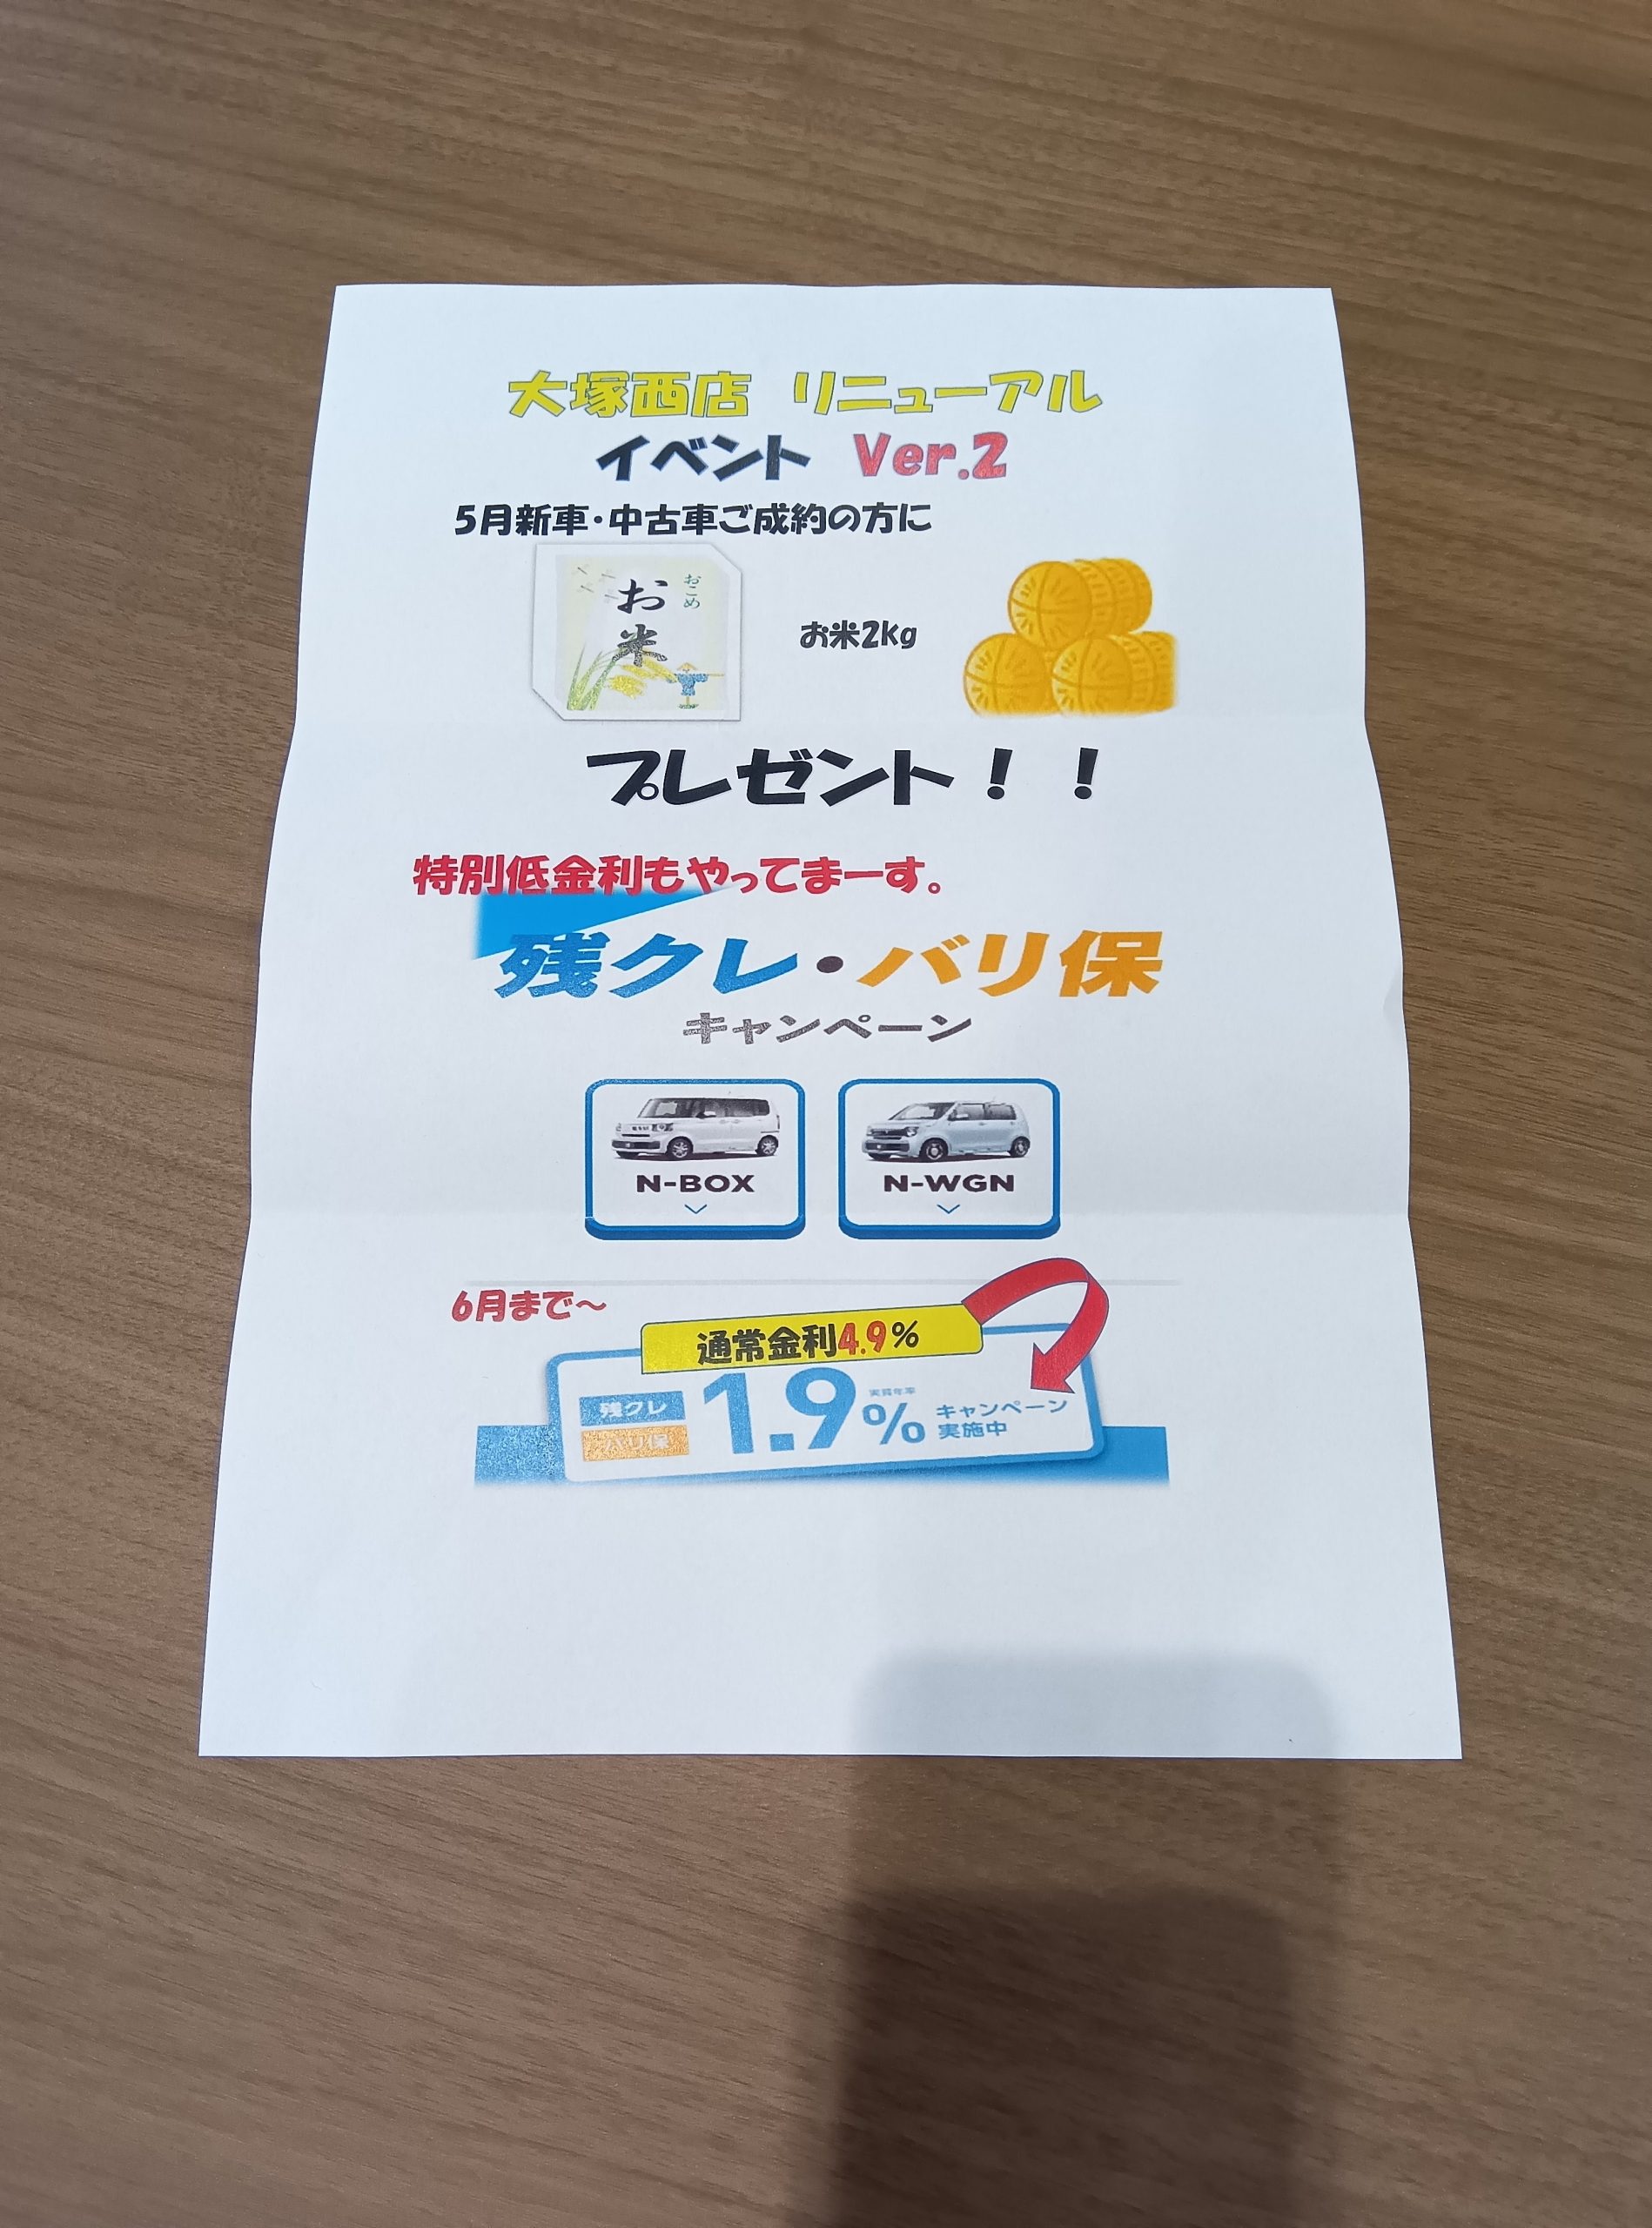 大塚西店 リニューアル
イベント Ver.2
5月新車・中古車ご成約の方に
おこめ
お米
お米2kg
プレゼント！！
特別低金利もやってまーす。
残クレ・バリ保
キャンペーン
N-BOX
N-WGN
6月まで～
通常金利4.9%
残クレ
バリ保
1.9%
実質年率
キャンペーン
実施中